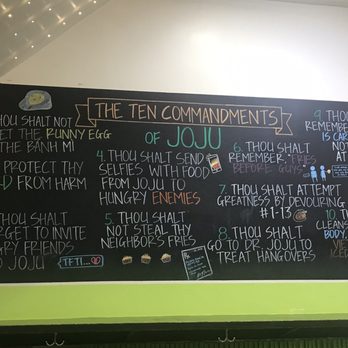 THE TEN COMMANDMENTS
OF JOJU
THOU SHALT NOT
THE RUNNY EGG
THE BANH MI
PROTECT THY
FROM HARM
THOU SHALT
TO INVITE
FRIENDS
JOJU
TFTI...
4. THOU SHALT SEND
SELFIES WITH FOOD
FROM JOJU TO
HUNGRY ENEMIES
5. THOU SHALT
NOT STEAL THY
NEIGHBORS FRIES
6. THOU SHALT
REMEMBER, "FRIES
BEFORE GUYS"
7. THOU SHALT ATTEMPT
GREATNESS BY DEVOURING
#1-13
8. THOU SHALT
GO TO DR. JOJU TO
TREAT HANGOVERS
9. THOU
REMEMBER
IS
NOT
AT
10.
CLEANS
BODY,